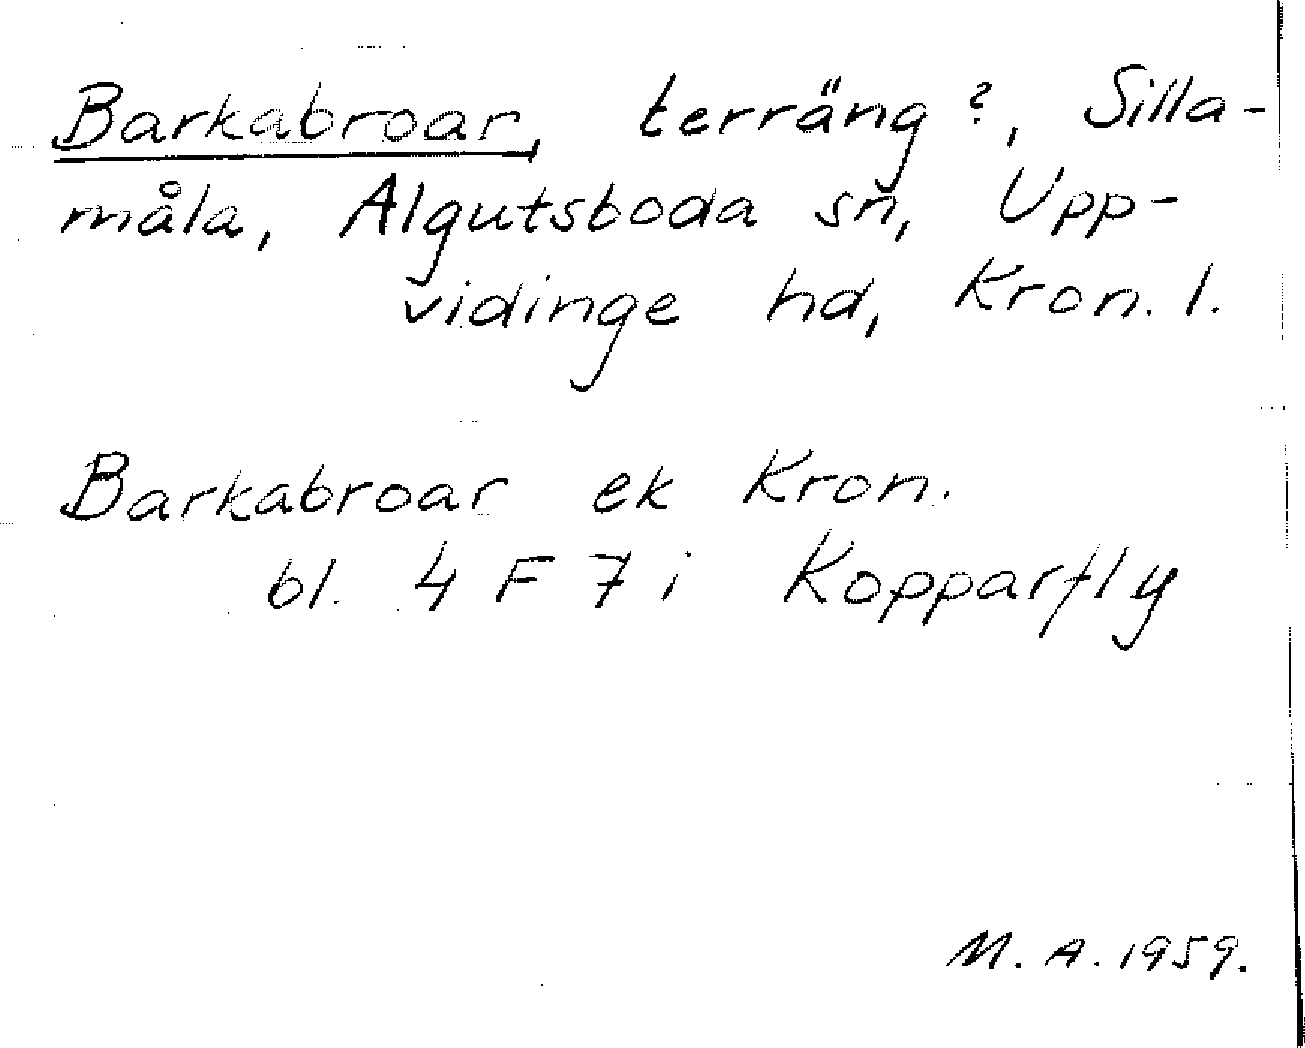 Barkabroar, terräng?, Silla-
måla, Algutsboda sn, Upp-
vidinge hd, Kron. l.
Barkabroar ek Kron.
bl. 4 F 7 i Kopparfly
M. A. 1959.